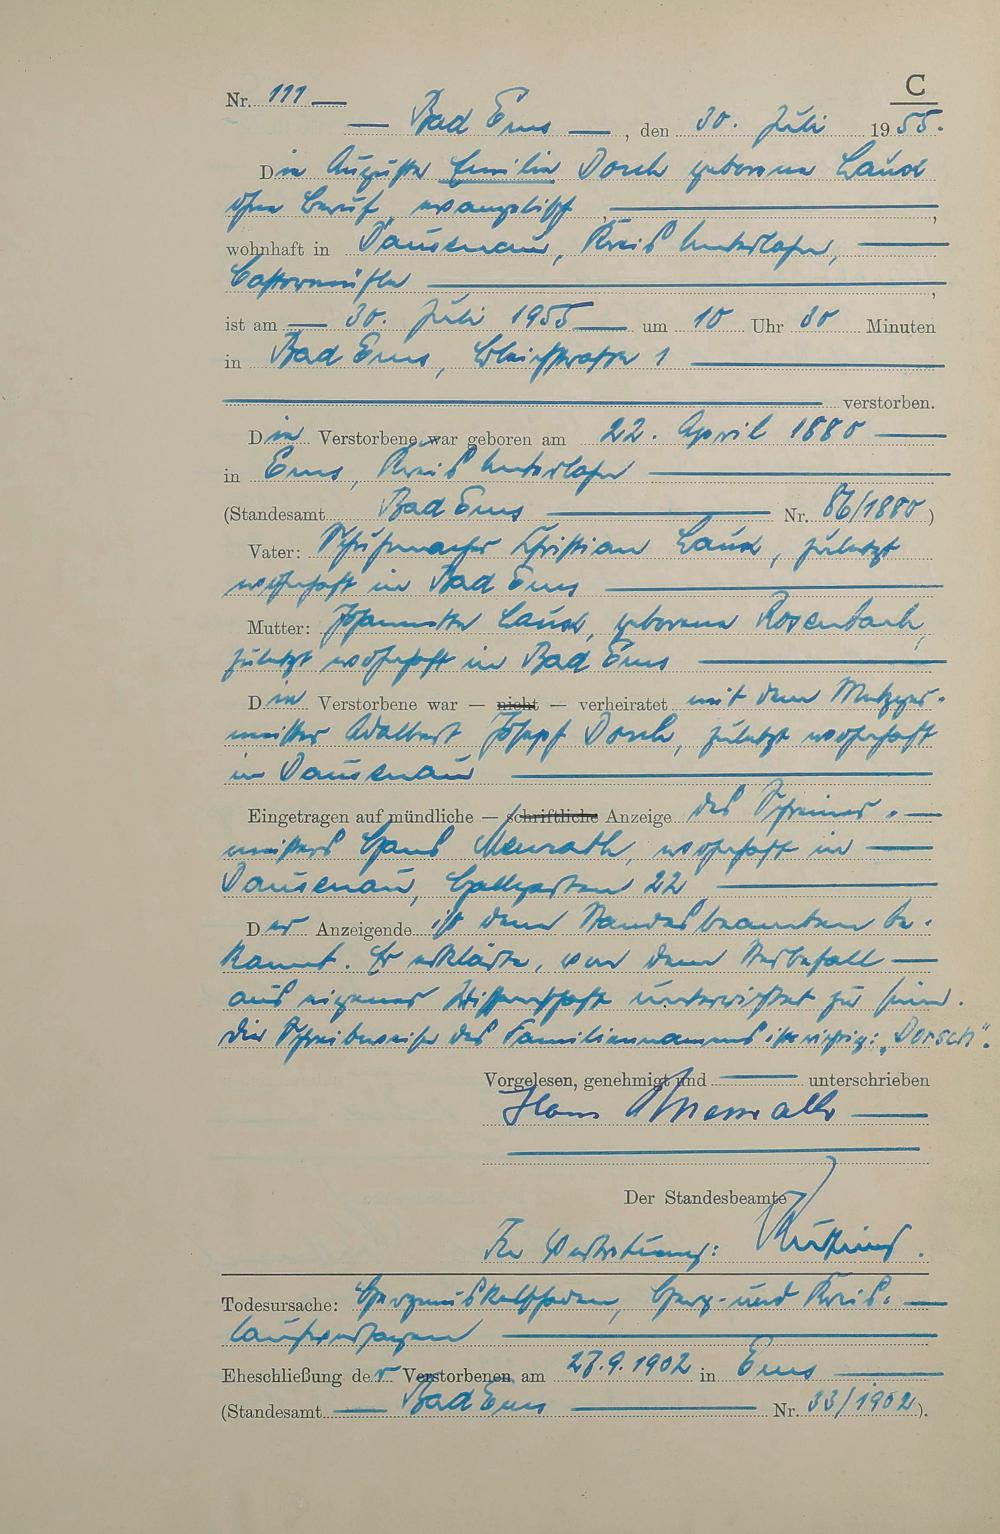 C
Nr. 111
Bad Ems, den 30. Juli 1955.
Die Auguste Emilie Dorsch geborene Laux
ohne Beruf, evangelisch,
wohnhaft in Dausenau, Kreis Unterlahn,
ist am 30. Juli 1955 um 10 Uhr 30 Minuten
in Bad Ems, Bleichstrasse 1
verstorben.
Die Verstorbene war geboren am 22. April 1880
in Ems, Kreis Unterlahn
(Standesamt Bad Ems Nr. 86/1880)
Vater: Schuhmacher Christian Laux, zuletzt
wohnhaft in Bad Ems
Mutter: Johannette Laux, geborene Rosenbach,
zuletzt wohnhaft in Bad Ems
Die Verstorbene war — nicht — verheiratet mit dem Metzger-
meister Adalbert Josef Dorsch, zuletzt wohnhaft
in Dausenau
Eingetragen auf mündliche — schriftliche Anzeige des Schreiner-
meisters Hans Menrath, wohnhaft in
Dausenau, Hallgarten 22
Der Anzeigende ist dem Standesbeamten be-
kannt. Er erklärte, von dem Sterbefall
aus eigener Wissenschaft unterrichtet zu sein.
Die Schreibweise des Familiennamens ist richtig: „Dorsch“.
Vorgelesen, genehmigt und unterschrieben
Hans Menrath
Der Standesbeamte
In Vertretung:
Todesursache: Herzmuskelschaden, Herz- und Kreis-
laufversagen
Eheschließung der Verstorbenen am 27.9.1902 in Ems
(Standesamt Bad Ems Nr. 33/1902).